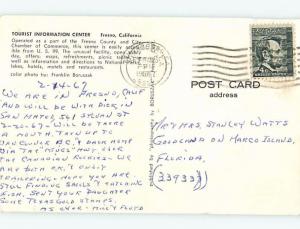 TOURIST INFORMATION CENTER Fresno, California
Operated as a part of the Fresno County and City
Chamber of Commerce, this center is easily
from U. S. 99. The unusual building
offers maps, refreshments, picnic tables
well as information and directions to National
color photo: for Franklin Boruszak
2-14-67
WE ARE IN FRESNO, CALIF
AND WILL BE WITH DICK, IN
SAN MATEO, 561 SYLVAN ST
2-20-67 WILL BE THERE
A MONTH, THEN UP TO
VANCOUVER B.C, & BACK HOME
VIA THE
THE CANADIAN ROCKIES - WE
ARE BOTH O.K. & ENJOY
TRAILERING - HOPE YOU ARE
STILL FINDING SHELLS & CATCHING
FISH. SENT YOUR DAUGHTER
SOME TEXAS GOLD STAMPS,
AS EVER - MILT & FLOYD
POST CARD
address
MR & MRS STANLEY WATTS
GOODLAND ON MARCO ISLAND,
FLORIDA,
(33933)